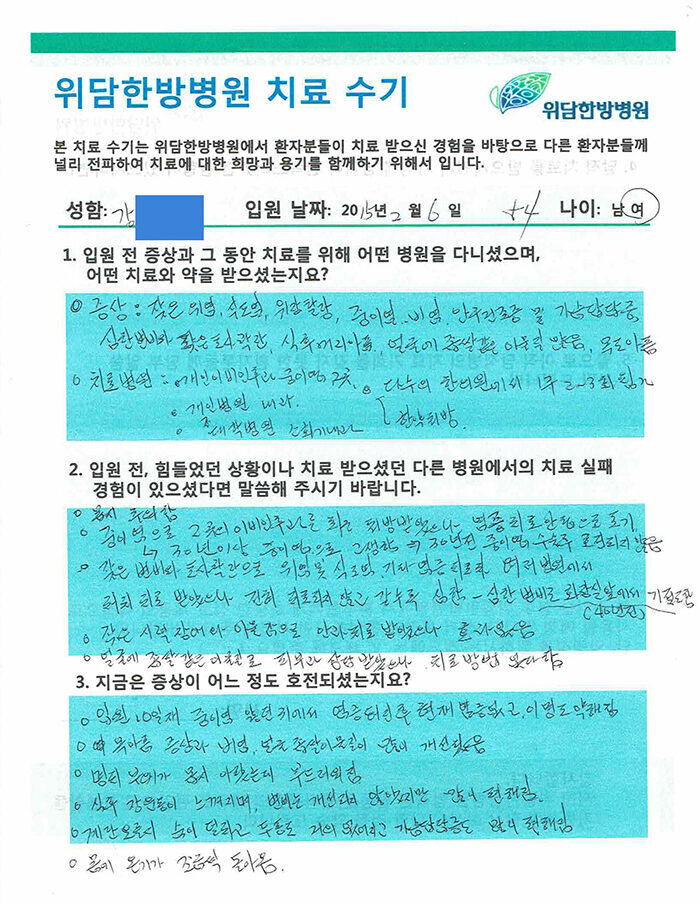 위담한방병원 치료 수기
위담한방병원
본 치료 수기는 위담한방병원에서 환자분들이 치료 받으신 경험을 바탕으로 다른 환자분들께
널리 전파하여 치료에 대한 희망과 용기를 함께하기 위해서 입니다.
성함: 강 입원 날짜: 2015년 2월 6일 54 나이: 남 여
1. 입원 전 증상과 그 동안 치료를 위해 어떤 병원을 다니셨으며,
어떤 치료와 약을 받으셨는지요?
증상: 잦은 위염, 식도염, 위하탈장, 중이염, 비염, 안구건조증 및 가슴답답증
심한변비와 잦은 토사곽란, 식후 머리아픔, 얼굴에 좁쌀같은 아울림 많음, 목도아픔
치료병원: 개인이비인후과 중이염 2곳, 다수의 한의원에서 1주 2~3회 침과
개인병원 내과. 한약처방
대학병원 소화기내과
2. 입원 전, 힘들었던 상황이나 치료 받으셨던 다른 병원에서의 치료 실패
경험이 있으셨다면 말씀해 주시기 바랍니다.
몹시 추위탐
중이염으로 2곳의 이비인후과를 처방받았으나 염증치료 안됨으로 포기
30년이상 중이염으로 고생함 30년전 중이염 수술후
잦은 변비와 토사곽란으로 위염 및 식도염, 여러 병원에서
치료 받았으나 전혀 치료되지 않고 갈수록 심함 - 심한 변비로 화장실앞에서 기절도함
(40년전)
잦은 시력장애와 으로 안과치료 받았으나 효과없음
얼굴에 좁쌀같은 피부과 상담받았으나 치료방법 없다함
3. 지금은 증상이 어느 정도 호전되셨는지요?
입원 10일째 중이염 앓던 귀에서 현재 염증없고, 이명도 약해짐
목아픔 증상과 비염, 얼굴 많이 개선되었음
명치 부위가 몹시 아팠는데 부드러워짐
식후 느껴지며, 변비는 개선되지 않았지만 많이 편해짐.
계단오를시 숨이 덜차고 두통도 거의 없어지고 가슴답답증도 많이 편해짐
몸에 온기가 조금씩 돌아옴.